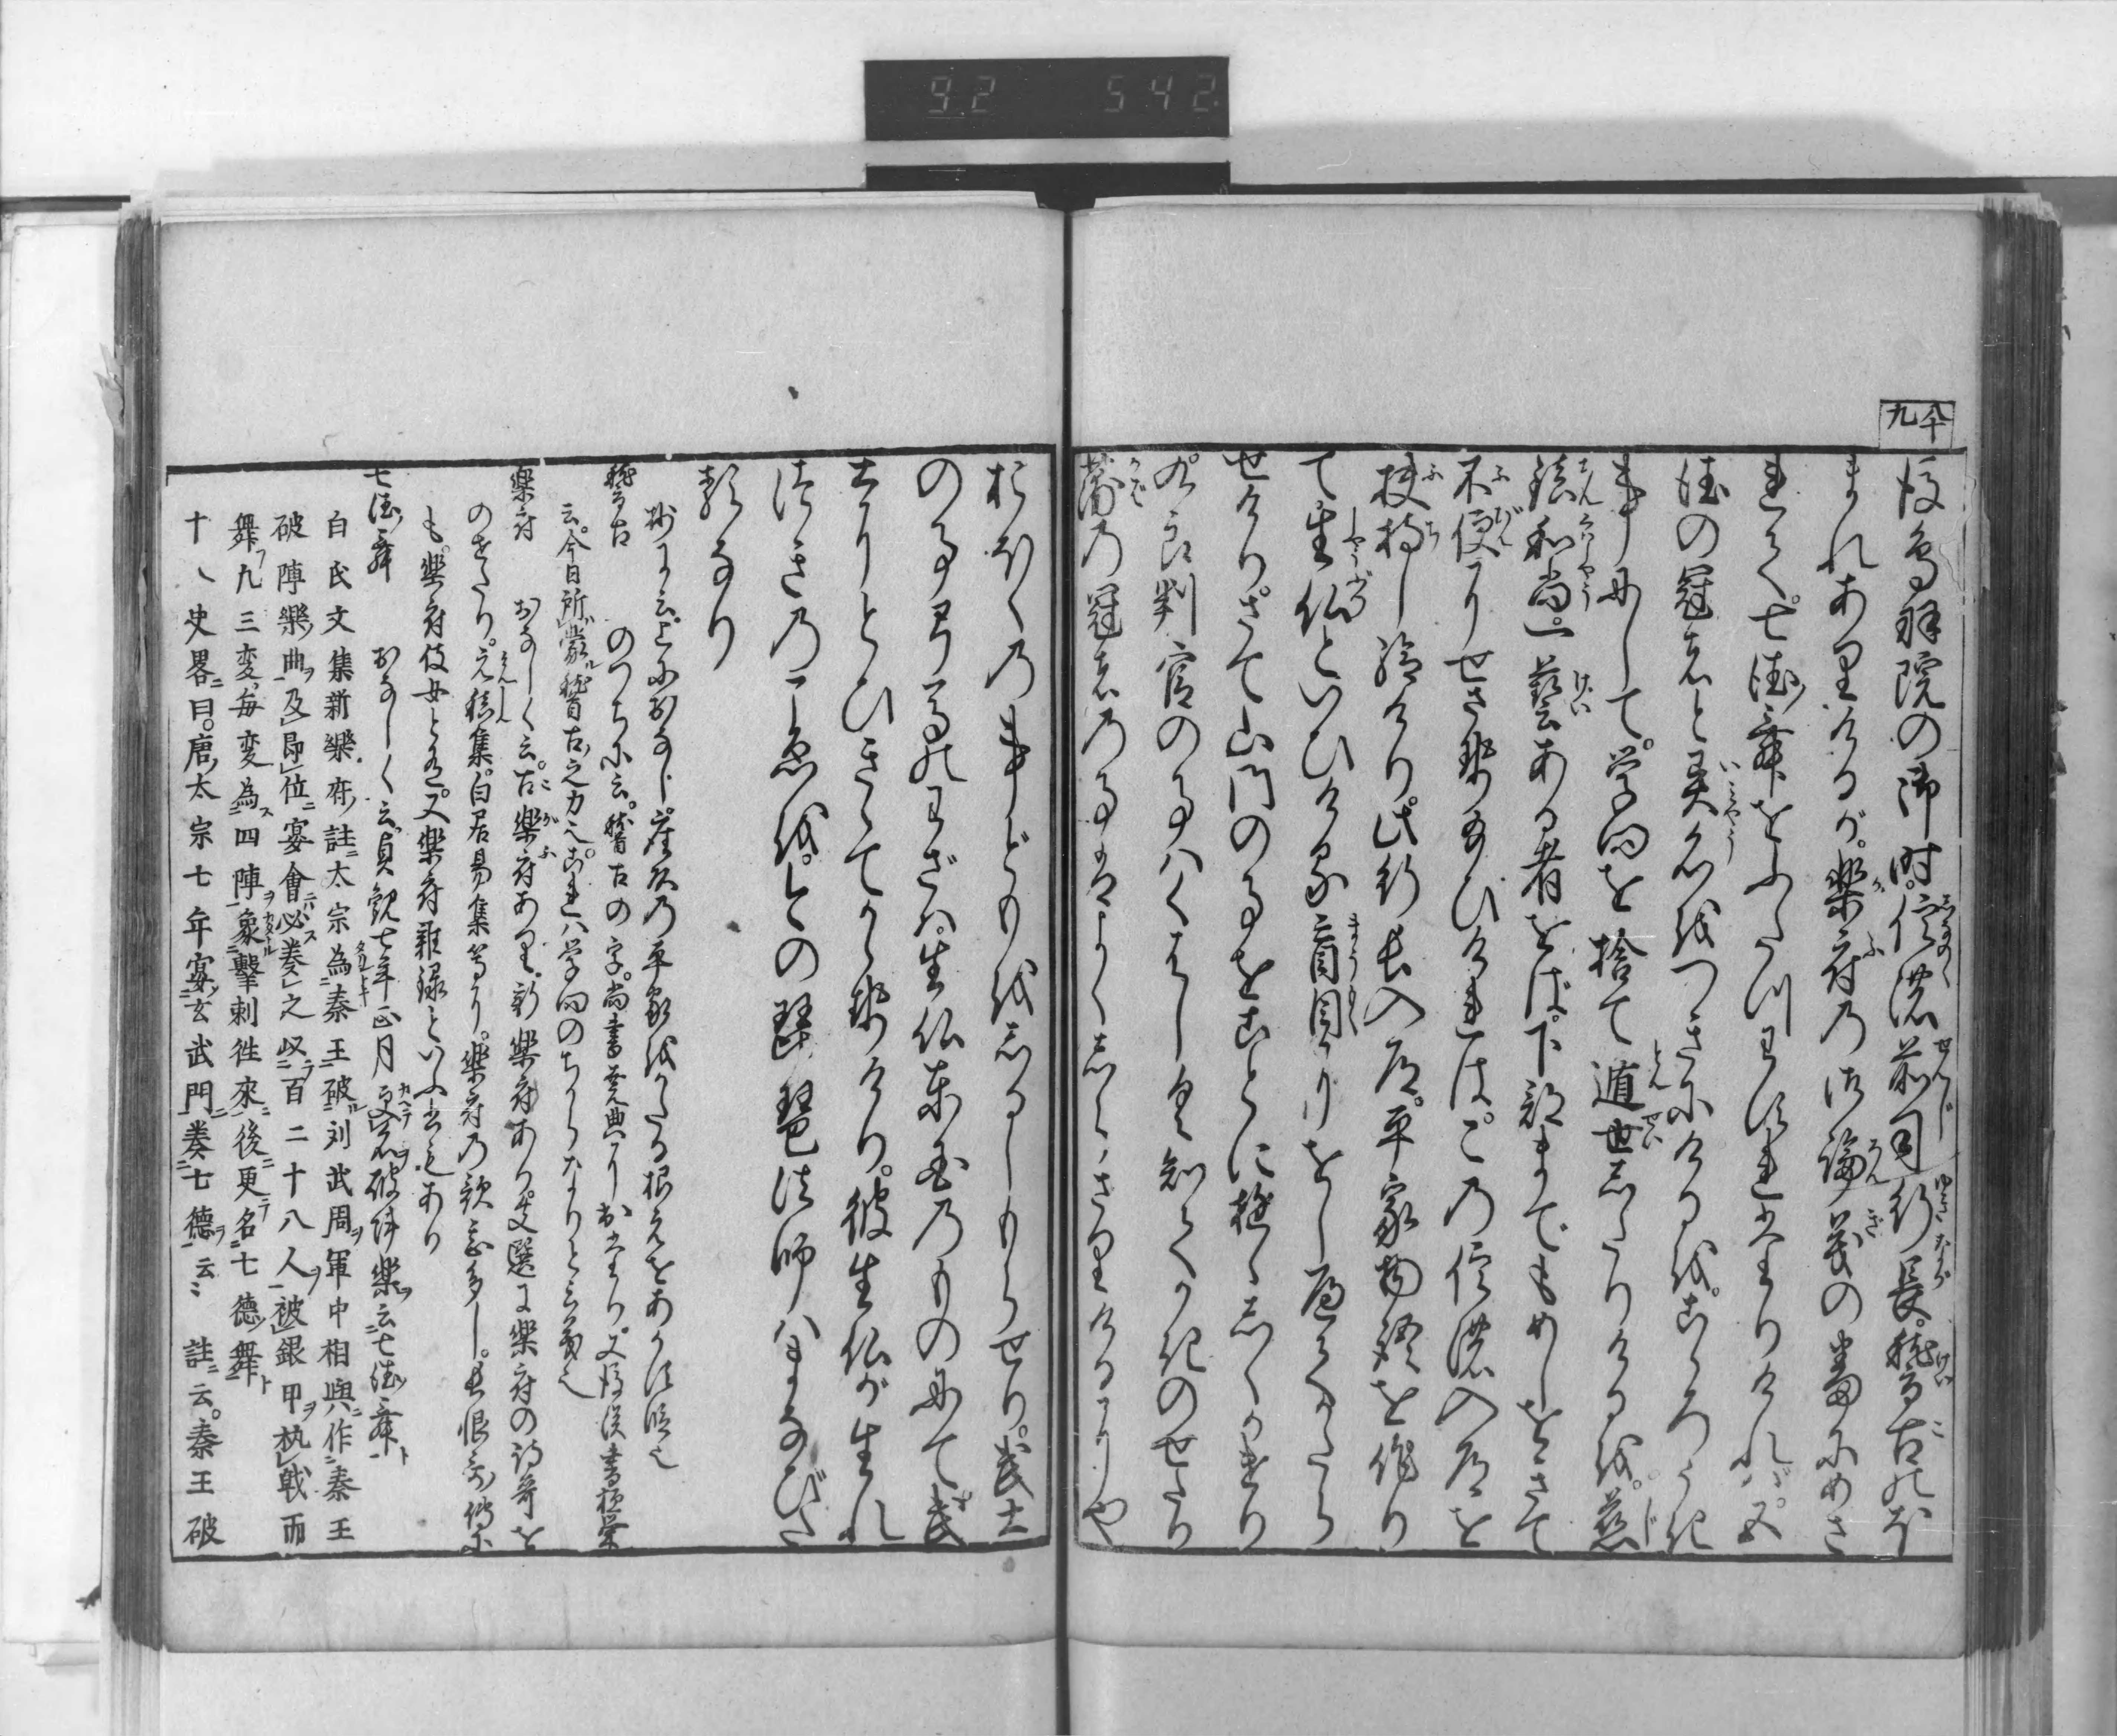 92 542
八十九
後鳥羽院の御時。信濃前司行長。稽古のほ
まれありけるが。楽府の御論義の番にめさ
れて。七徳舞をふたつわすれたりければ。五
徳の冠者と異名をつきにけるを。心うき
事にして。学問を捨て遁世したりけるを。慈
鎮和尚。一藝ある者をば。下部までもめしをきて
不便にせさせ給ひければ。この信濃入道を
扶持し給けり。此行長入道。平家物語を作り
て生仏といひける盲目にをしへてかたら
せけり。さて山門の事をことにゆゝしくかけり
九郎判官の事はくはしく知てかきのせたり
蒲の冠者の事はよくしらざりけるにや
おほくの事どもをしるしもらせり。武士
の事弓馬のわざは。生仏東国のものにて。武
士にとひきゝてかゝせけり。彼生仏が生れ
つきのこゑを。今の琵琶法師はまなびた
るなり
稽古 のつちに云。稽古の字。尚書堯典に出たり。又後漢書桓榮
云。今日所蒙稽古之力也。これは学問のちからなりといふ義也
楽府 おなしく云。古楽府あり。新楽府あり。文選に楽府の詩哥を
のせたり。元稹集。白居易集等に。楽府の歌
も。楽府伎女と有。又楽府雜録といふ書あり
七徳舞 おなしく云。貞観七年正月更名破陣樂云七徳舞ト
白氏文集新樂府註太宗為秦王破刘武周軍中相與作秦王
破陣樂曲及即位宴會必奏之
百二十八人被銀甲执戟而
舞凢三変毎変為四陣象擊刺徃來後更名七德舞
十八史畧曰。唐太宗七年宴玄武門奏七德云〻 註云。秦王破